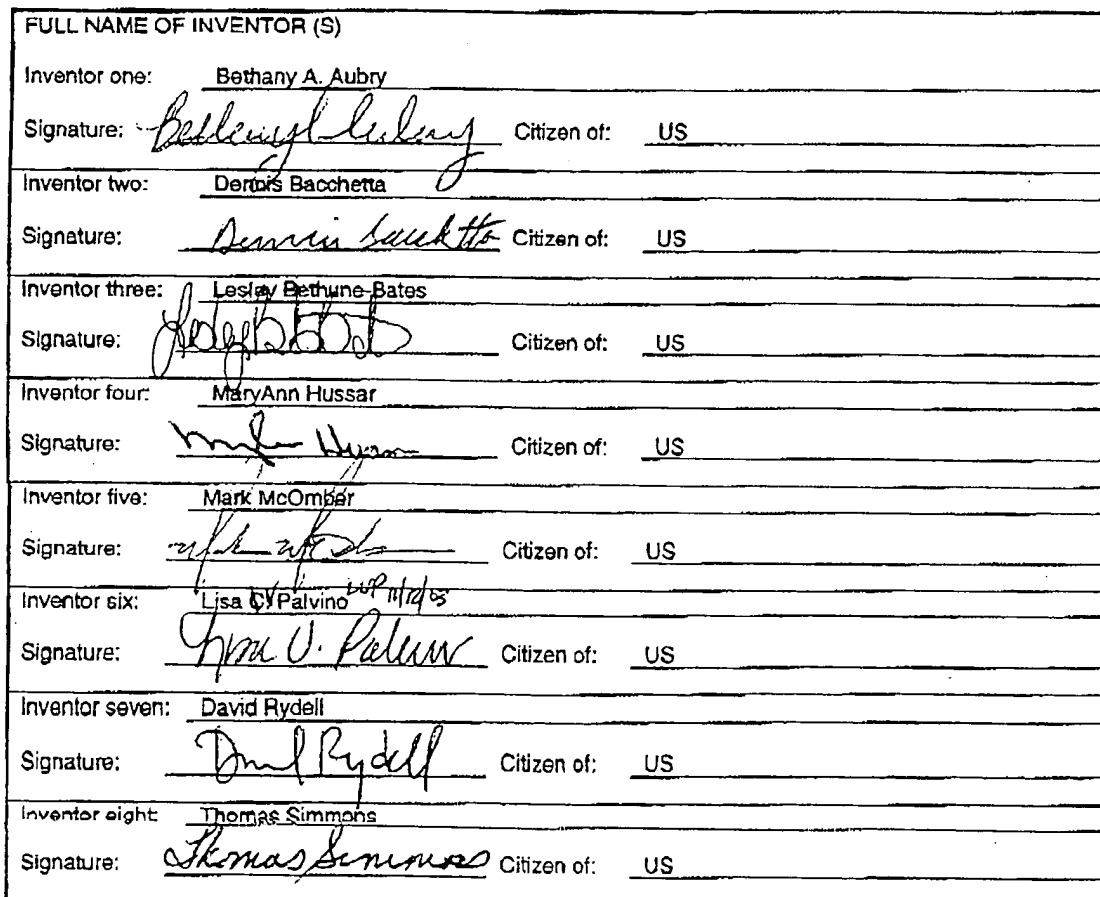 FULL NAME OF INVENTOR (S)
Inventor one: Bethany A. Aubry
Signature: Citizen of: US
Inventor two: Dennis Bacchetta
Signature: Dennis Bacchetta Citizen of: US
Inventor three: Lesley Bethune-Bates
Signature: Citizen of: US
Inventor four: MaryAnn Hussar
Signature: Citizen of: US
Inventor five: Mark McOmber
Signature: Citizen of: US
Inventor six: Lisa C. V. Palvino LVP
Signature: Lisa V. Palvino Citizen of: US
Inventor seven: David Rydell
Signature: David Rydell Citizen of: US
Inventor eight: Thomas Simmons
Signature: Thomas Simmons Citizen of: US